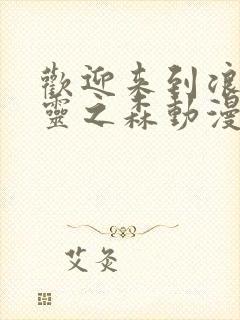 歡迎来到浪
靈之森動漫
艾灸